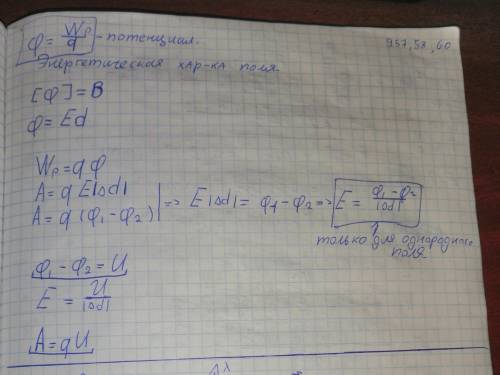 φ = Wp/q - потенциал. 957, 58, 60
Энергетическая хар-ка поля.
[φ] = В
φ = Ed
Wp = qφ
A = qE|Δd|
A = q(φ₁-φ₂) | => E|Δd| = φ₁-φ₂ => E = (φ₁-φ₂)/|Δd|
только для однородного
поля
φ₁-φ₂ = U
E = U/|Δd|
A = qU